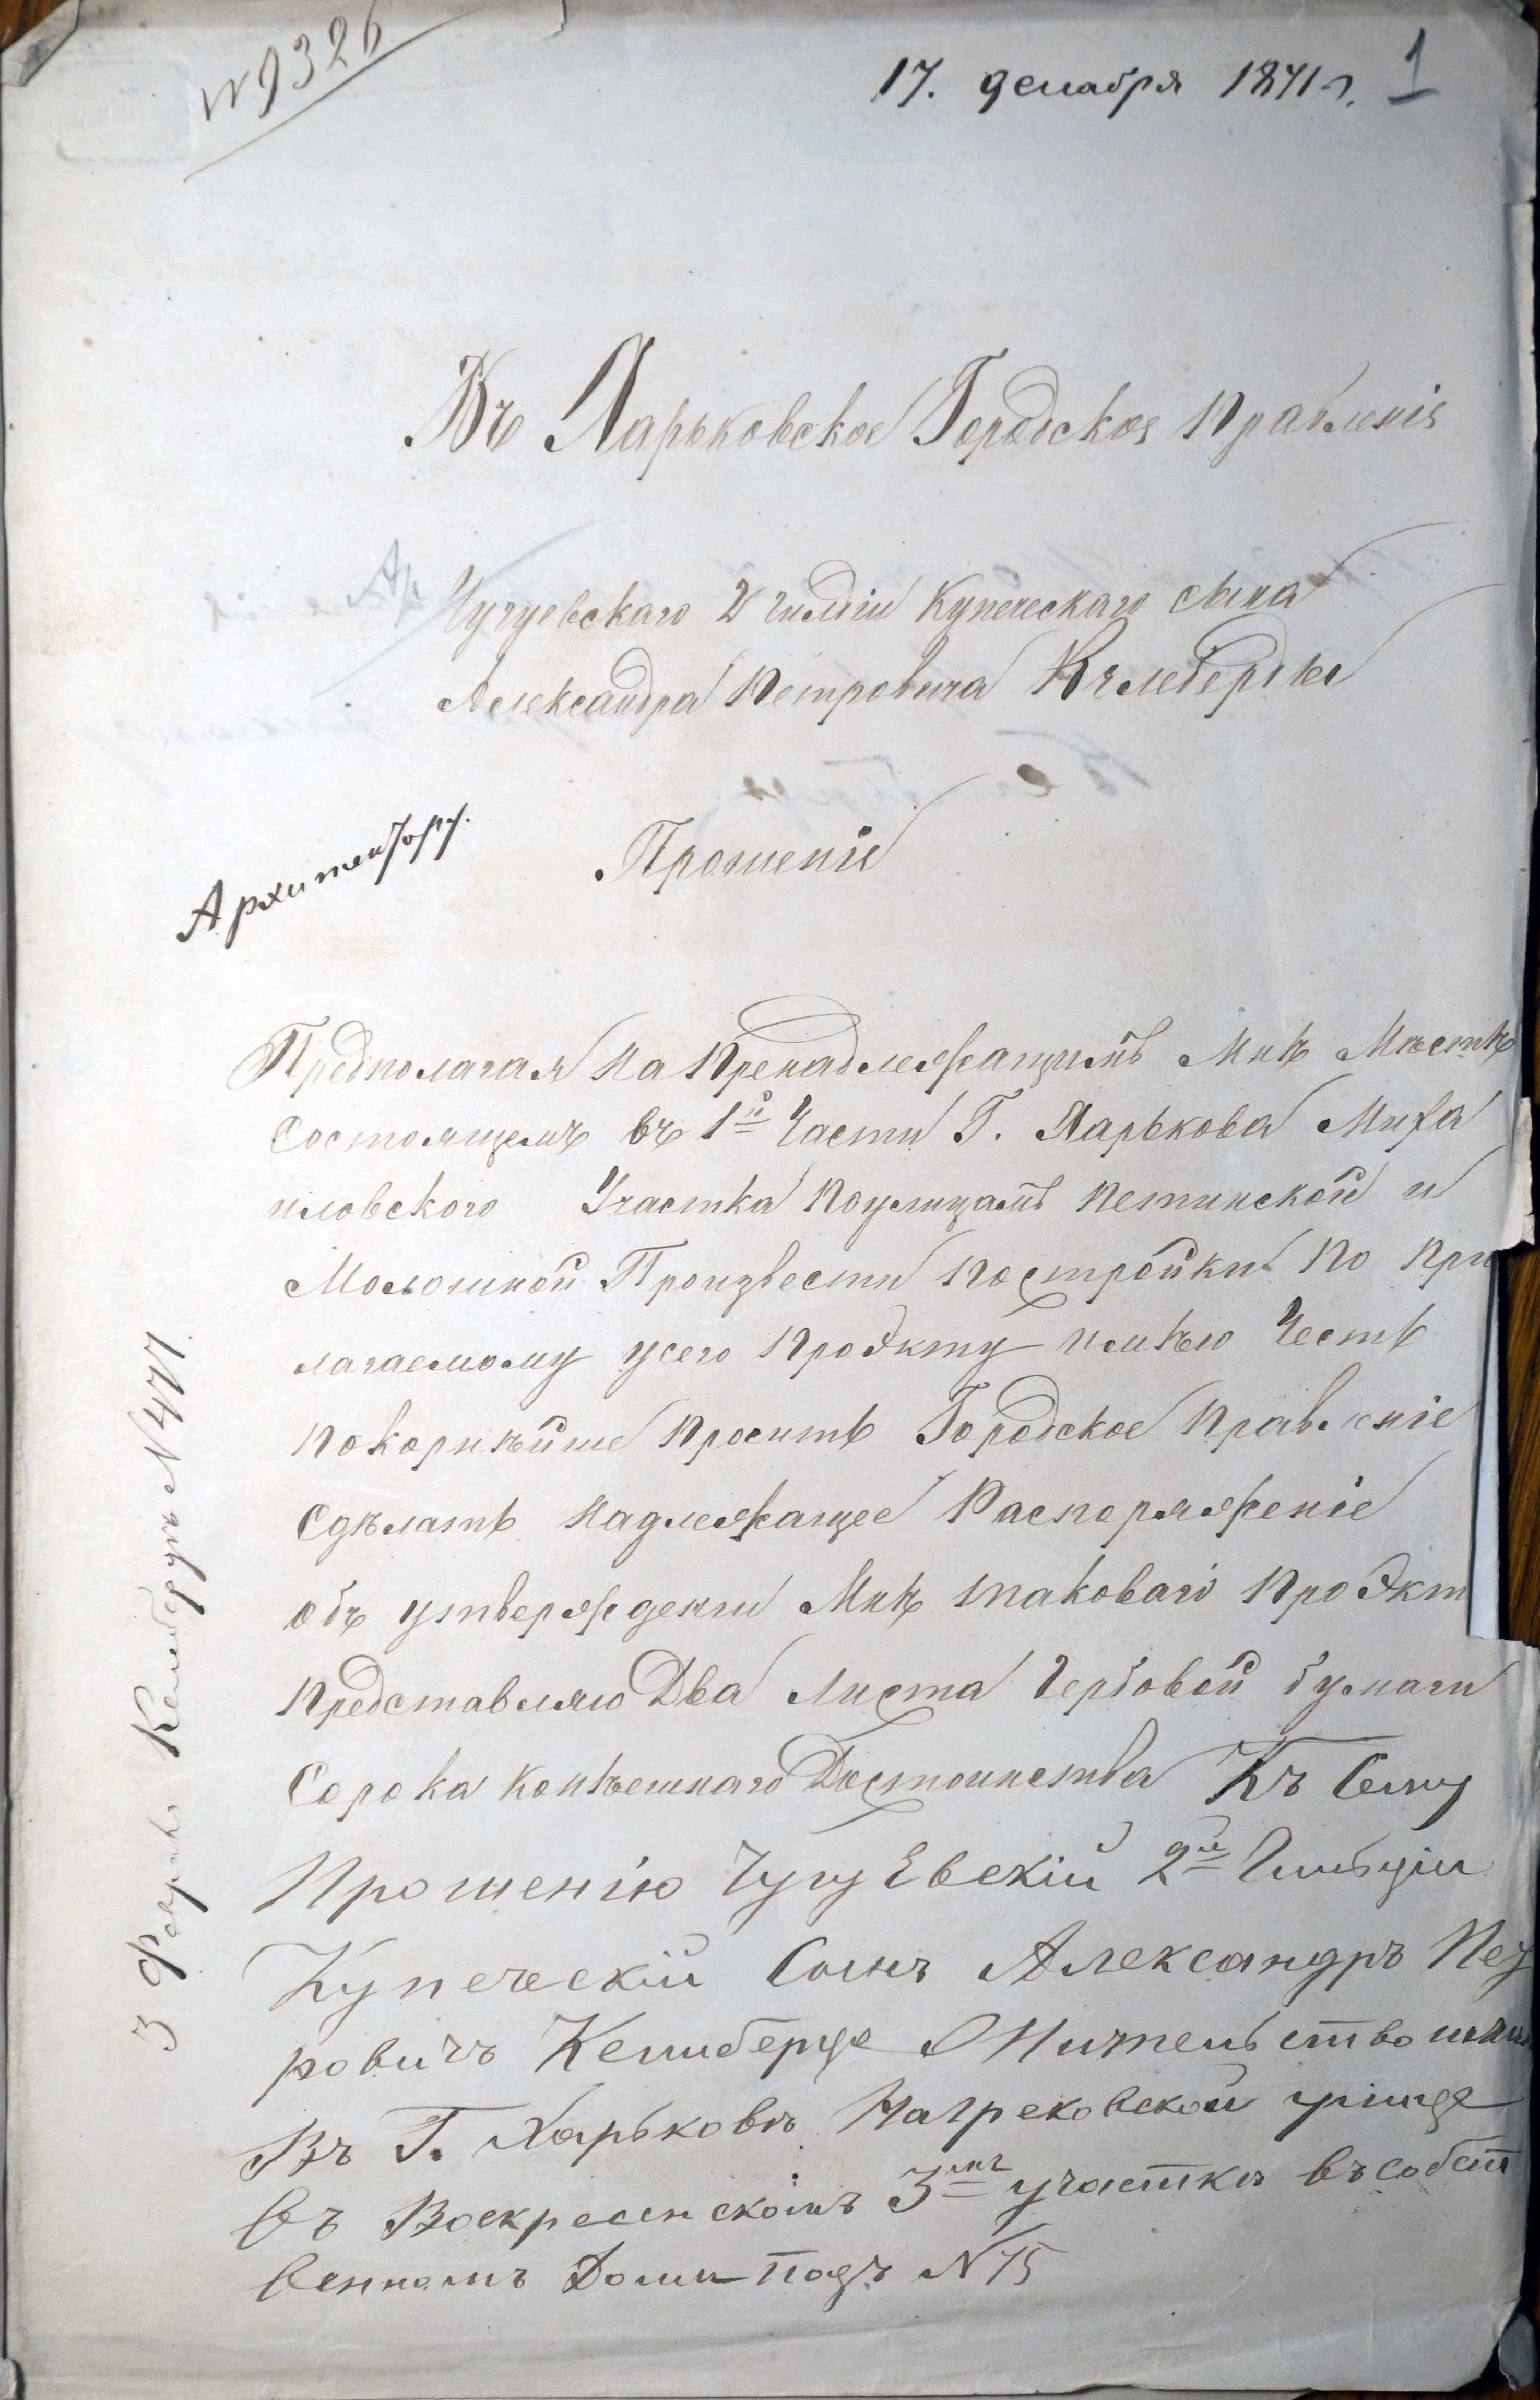 № 9326
17. декабря 1871 г. 1
Въ Харьковское Городское Правленія
Чугуевскаго 2 гилдіи Купеческаго сына
Александра Петровича Келеберды
Прошеніе
Архитектору.
Предполагая На Пренадлежащимъ Мнѣ Мѣстѣ
Состоящемъ въ 1й Части Г. Харькова Миха
иловского Участка Поулицамъ Петинской и
Молошной Произвести постройки По При
лагаемому усего Проэкту имѣю Честь
Покорнѣйше Просить Городское Правленіе
Сдѣлать Надлежащее Распоряженіе
объ утвержденіи Мнѣ таковаго Проэкт
Представляю Два Листа Гербовой бумаги
Сорока Копѣешнаго Достоинства Къ Сему
Прошенію ЧугуЕвскій 2й Гильдіи
Купеческій Сынъ Александръ Пет
ровичъ Келиберда Жительство имѣю
Въ Г. Харьковѣ На Грековской улице
въ Воскресенскомъ 3мъ участкѣ въ собст
венномъ Доми подъ N 15
3 Февраля Келебердѣ N 477